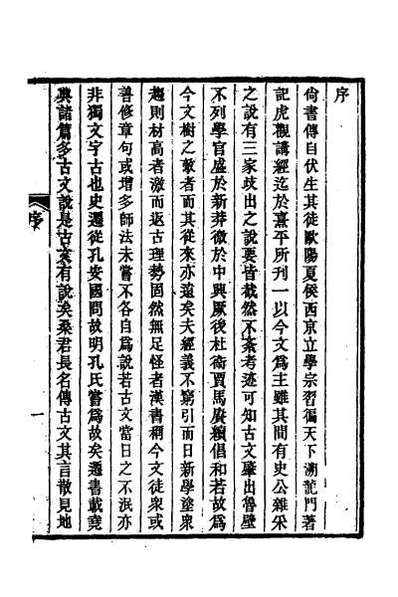 序
尙書傳自伏生其徒歐陽夏侯西京立學宗習徧天下溯龍門著
記虎觀講經迄於熹平所刊一以今文爲主雖其間有史公雜采
之說有三家歧出之說要皆截然不紊考迹可知古文肇出魯壁
不列學官盛於新莽微於中興厥後杜衞賈馬賡續倡和若故爲
今文樹之敵者而其從來亦遠矣夫經義不窮引而日新學塗衆
趨則材高者激而返古理勢固然無足怪者漢書稱今文徒衆或
善修章句或增多師法未嘗不各自爲說若古文當日之不泯亦
非獨文字古也史遷從孔安國問故明孔氏嘗爲故矣遷書載堯
典諸篇多古文說是古文有說矣桑君長名傳古文其言散見地
序
一